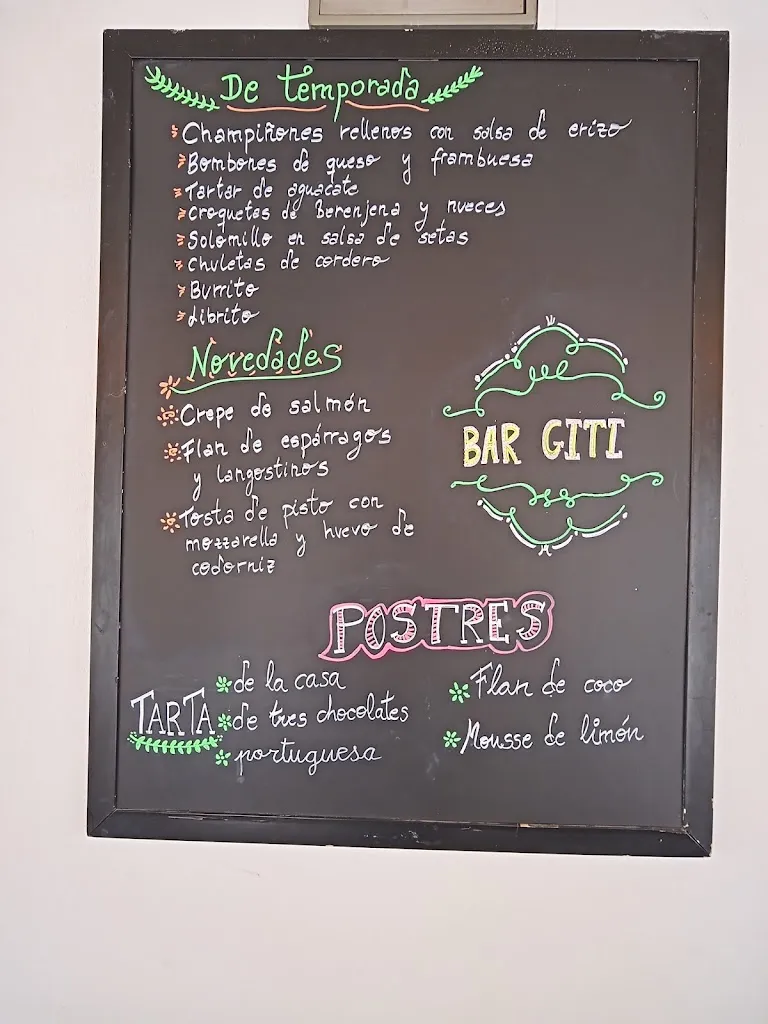 De temporada
Champiñones rellenos con salsa de erizo
Bombones de queso y frambuesa
Tartar de aguacate
Croquetas de Berenjena y nueces
Solomillo en salsa de setas
Chuletas de cordero
Burrito
Librito
Novedades
Crepe de salmón
Flan de espárragos
y langostinos
Tosta de pisto con
mozzarella y huevo de
codorniz
BAR GITI
POSTRES
TARTA
de la casa
de tres chocolates
portuguesa
Flan de coco
Mousse de limón